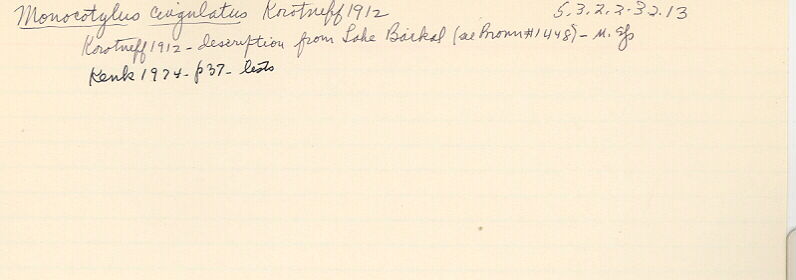 Monocotylus cingulatus Korotneff 1912 5.3.2.3.32.13
Korotneff 1912 - description from Lake Baikal (see Bronn #1448) - n. sp.
Kenk 1974 - p 37 - lists